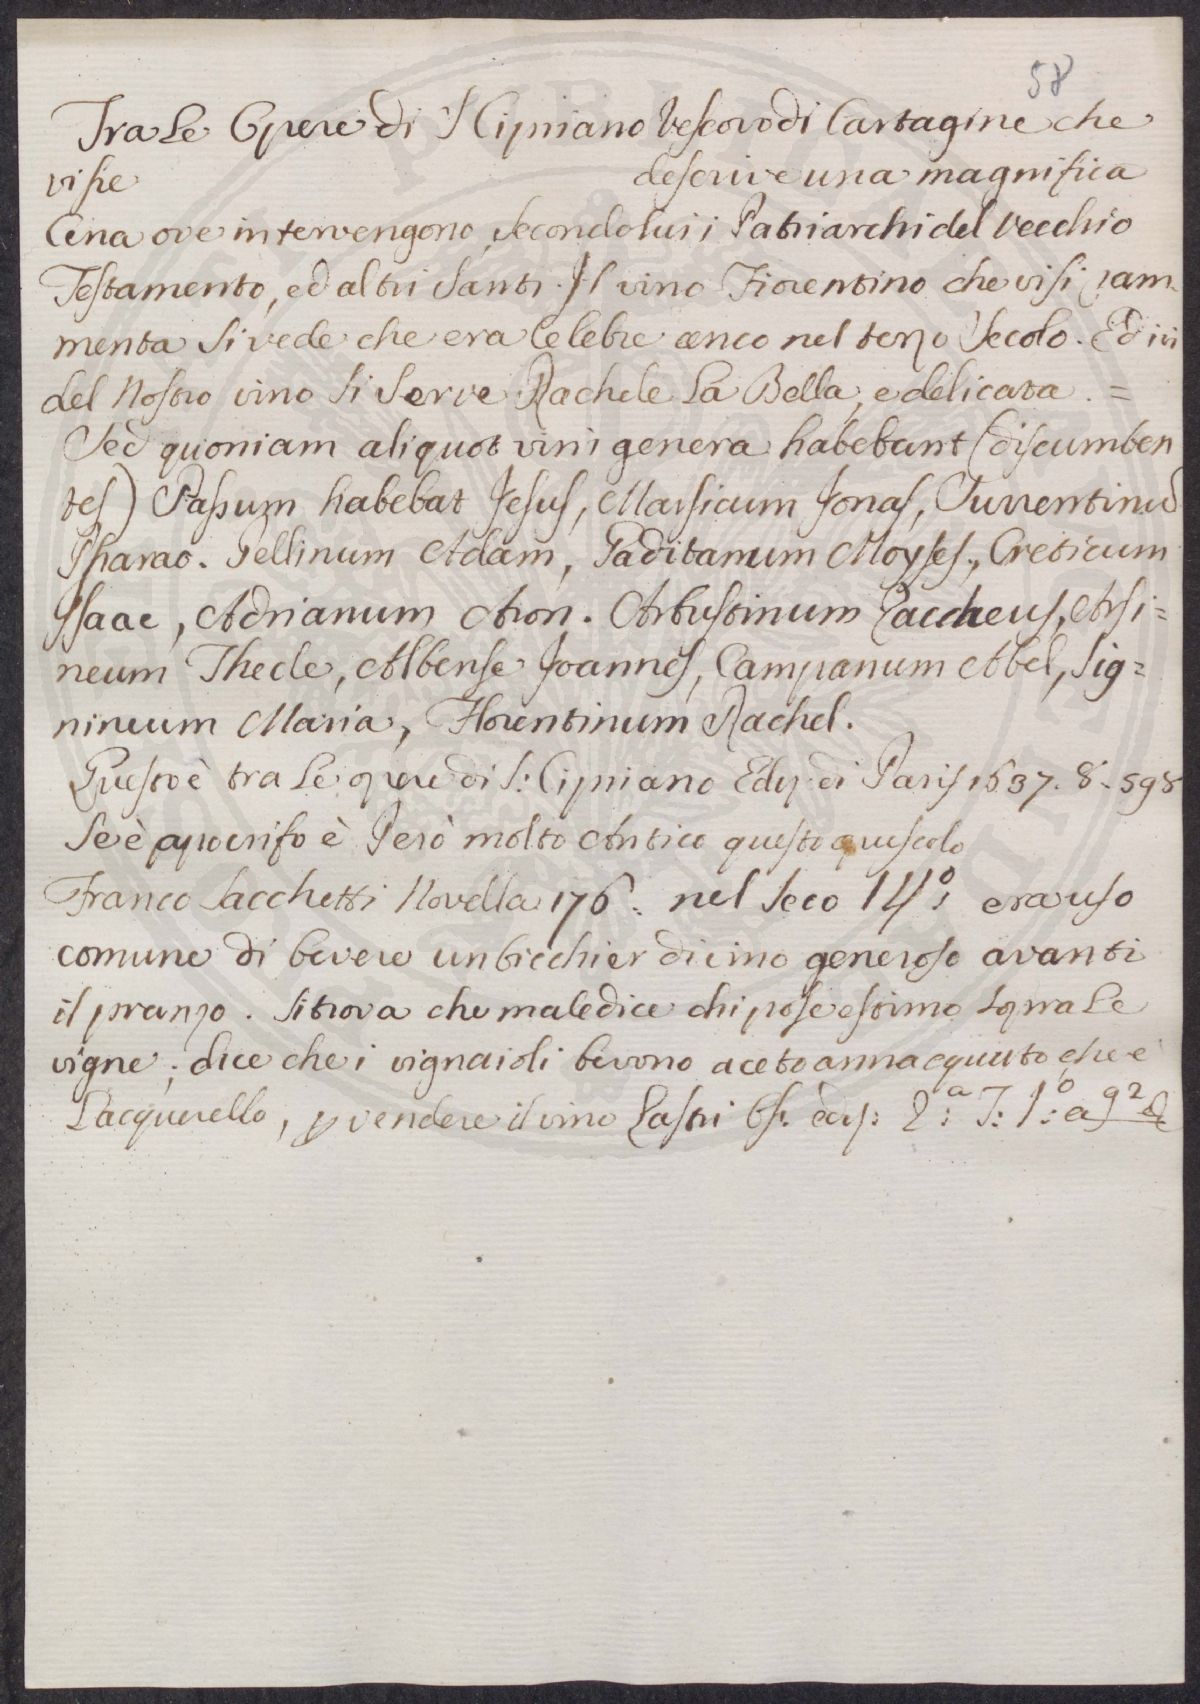 58
Tra Le Opere di S Cipriano Vescovo di Cartagine che
visse descrive una magnifica
Cena ove intervengono, secondo lui i Patriarchi del Vecchio
Testamento, ed altri Santi. Il vino Fiorentino che visi ram-
menta si vede che era Celebre anco nel terzo Secolo. Ed ivi
del Nostro vino si Serve Rachele La Bella, e delicata. =
Sed quoniam aliquot vini genera habebant (discumben
tes) Passum habebat Jesus, Marsicum Jonas, Surrentinum
Pharao. Pellinum Adam, Gaditanum Moyses, Creticum
Isaac, Adrianum Aron. Arbustinum Zaccheus, Arsi=
neum Thecle, Albense Joannes, Campanum Abel, Sig=
nineum Maria, Florentinum Rachel.
Questo è tra Le opere di S: Cipriano Ediz di Paris 1637. 8. 598
Se è apocrifo è Però molto Antico questo opuscolo
Franco Sacchetti Novella 176. nel Seco 14º: era uso
comune di bevere un bicchier di vino generoso avanti
il pranzo. Si trova che maledice chi pose estimo sopra Le
vigne; dice che i vignaioli bevono aceto annacquato che è
L'acquerello, p vendere il vino Lastri 2:ª T: 1:º a 92